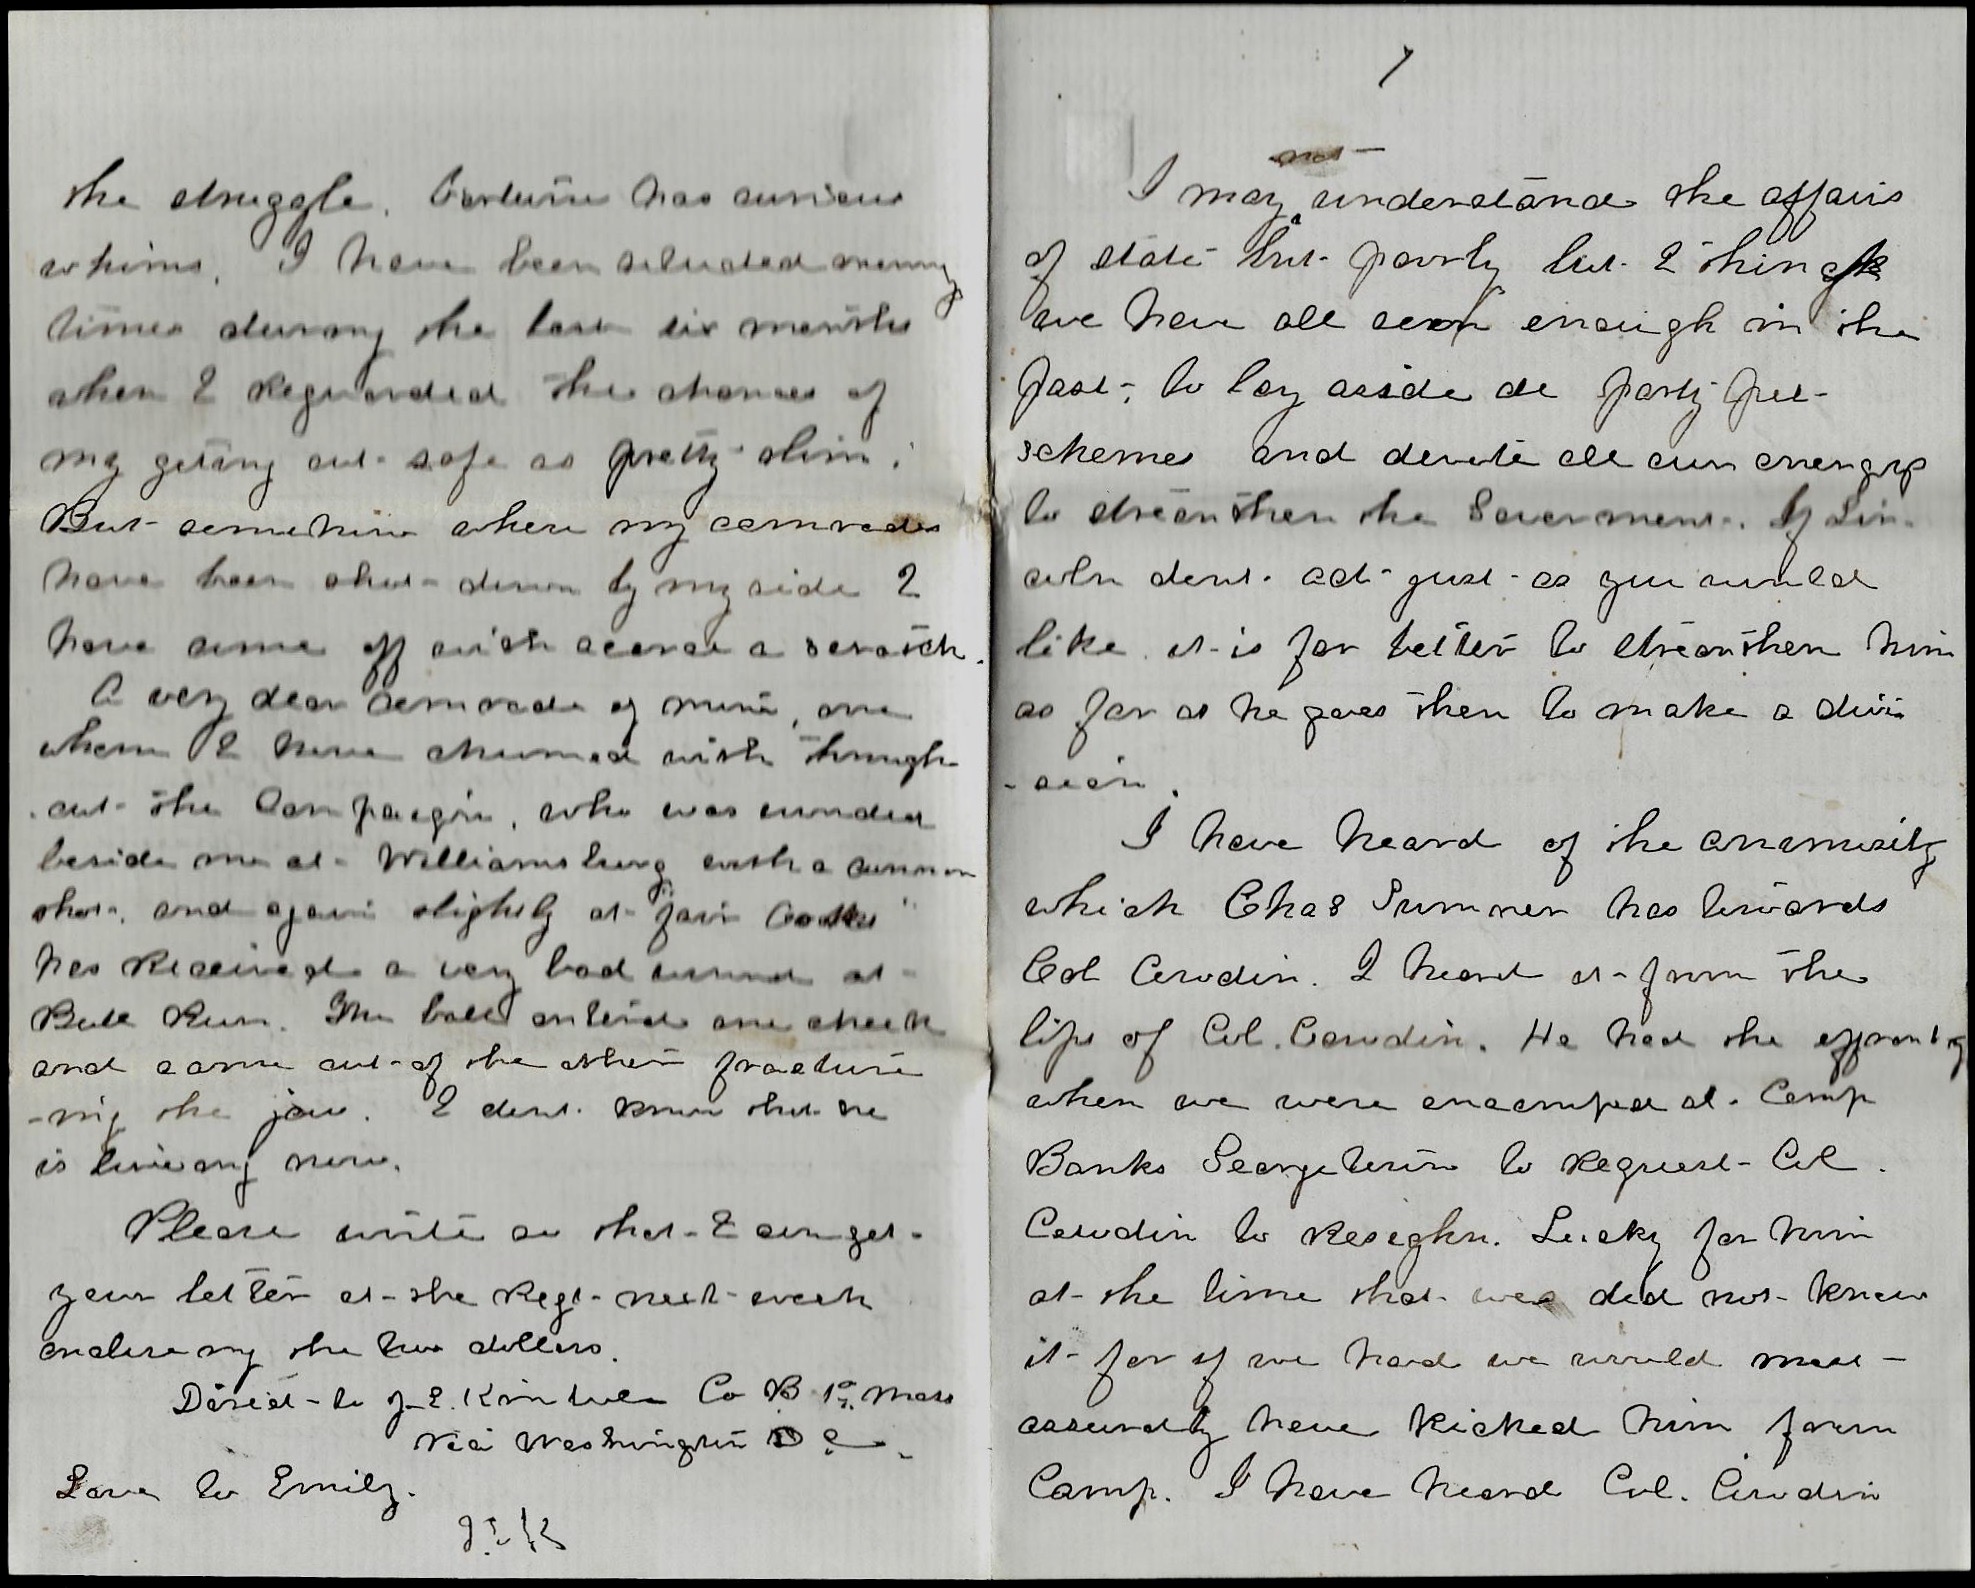 the struggle. Fortune has curious
whims. I have been situated menny
times durang the last six months
when I Reguarded the chances of
my geting out safe as pretty slim.
But somehow where my comrades
have been shot down by my side I
have come off with scarce a scratch.
A very dear comrade of mine, one
whom I have chumed with through
-out the Campaign, who was wunded
beside me at Williamsburg with a cannon
shot, and again slightly at "Fair Oaks"
has Received a very bad wound at
Bull Run. The ball entered one cheek
and came out of the other fracture
-ing the jaw. I dont know that he
is liveang now.
Please write so that I can get
your letter at the Regt next week
enclosemg the two dollars.
Direct to J.E. Kimball Co B 1st. Mass
Via Washington D C.
Love to Emily.
J.E.K
7
not
I may understand the affairs
of state but poorly but I think
we have all seen enough in the
past, to lay aside all party pet
schemes and devote all our energys
to streanthen the Government. If Lin-
coln dont act just as you would
like it is far better to streanthen him
as far as he goes then to make a divis
-sion.
I have heard of the annimosity
which Chas Sumner has towards
Col Cowdin. I heard it from the
lips of Col. Cowdin. He had the effrontry
when we were encamped at Camp
Banks Georgetown to Request Col.
Cowdin to Reseighn. Lucky for him
at the time that we did not know
it for if we had we would most
assuredly have kicked him from
Camp. I have heard Col. Cowdin